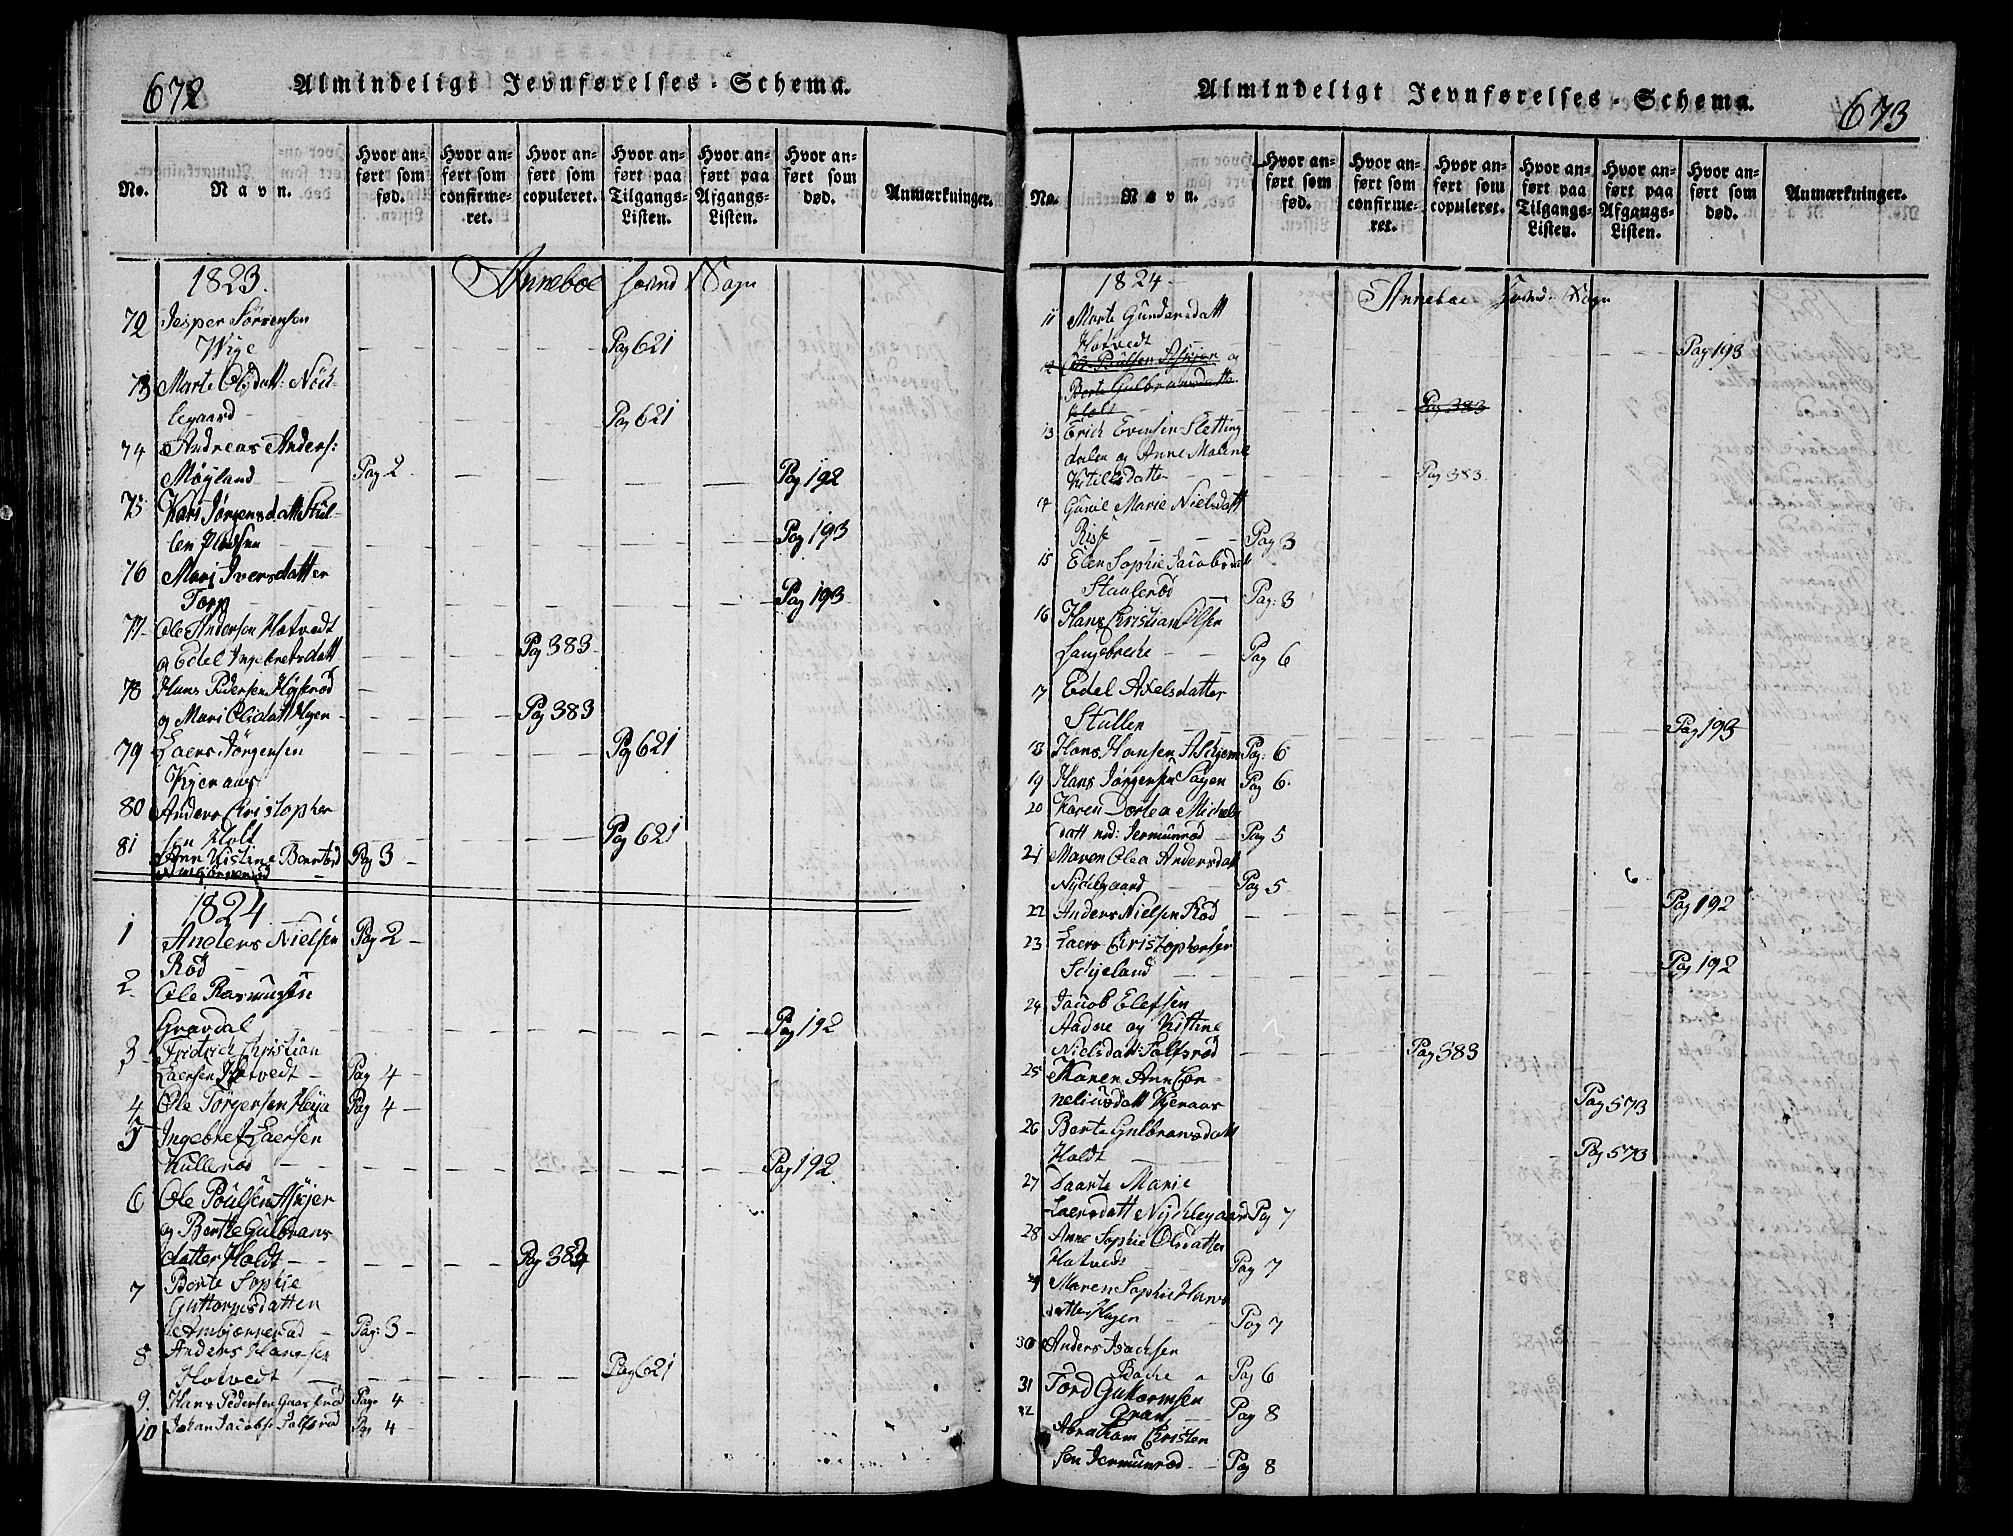 672
Almindeligt Jevnførelses-Schema.
No.
Navn.
Hvor anført som fød.
Hvor anført som confirmeret.
Hvor anført som copuleret.
Hvor anført paa Tilgangs-Listen.
Hvor anført paa Afgangs-Listen.
Hvor anført som død.
Anmærkninger.
1823. Anneboe Sogn
72 Jesper Sörensen
Wige Pag 621
73 Marte Olsdatt: Nök-
legaard Pag 621
74 Andreas Anders:
Møyland Pag 2 Pag 192
75 Kari Jørgensdatt Stul-
len Pladsen Pag 193
76 Mari Iversdatter
Torp Pag 193
77 Ole Andersen Hotvedt
og Edel Ingebretsdatt Pag 383
78 Hans Pedersen Højsrød
og Mari Olsdatt Hyen Pag 383
79 Laers Jørgensen Pag 621
Kjeraas
80 Anders Christopher
sen Holt Pag 621
81 Ann Kistine Berntsd Pag 3
1824
1 Anders Nielsen Pag 2
Rød
2 Ole Rasmusen
Gravdal Pag 192
3 Fridrich Christian
Laersen Hotvedt Pag 4
4 Ole Torgersen Heja Pag 4
5 Ingebret Laersen
Kullerød Pag 192.
6 Ole Poulsen Askjer
og Berthe Gulbrans
datter Holdt Pag 382
7 Berte Sophie
Guttormsdatten
Ambjørnerød Pag: 3
8 Anders Hansen
Hotvedt Pag 621
9. Hans Pedersen Gaasrød Pag 4
10 Johan Jacobse Solfsrød Pag 4
673
Almindeligt Jevnførelses-Schema.
No.
Navn.
Hvor anført som fød.
Hvor anført som confirmeret.
Hvor anført som copuleret.
Hvor anført paa Tilgangs-Listen.
Hvor anført paa Afgangs-Listen.
Hvor anført som død.
Anmærkninger.
1824 Anneboe Sogn
11 Marte Gundersdatt
Hotvedt Pag 193
12 Ole Poulsen Askjer og
Berte Gulbransdatte
Holt Pag 383
13 Erich Evensen Sletting
dalen og Anne Malene
Ketilsdatter Pag 383.
14 Guril Marie Nielsdatt
Risse Pag 3
15 Elen Sophie Jacobsdatt
Staulerød Pag: 3
16 Hans Christian Olsen
Langebreke Pag 6
17 Edel Axelsdatter
Stullen Pag 193
18 Hans Hansen Askjem Pag: 6
19 Hans Jørgensen Søyen Pag 6
20 Karen Dortea Michels
datt ned: Jermunrød Pag 5
21 Maren Olea Andersdatt
Nøklegaard Pag 5
22 Anders Nielsen Rød Pag 192
23 Laers Christophersen
Schjeland Pag 192
24 Jacob Elefsen
Aadne og Kistine
Nielsdatt: Solfsrød Pag 383
25 Maren Ann Cor-
neliusdatt Kjeraas Pag 573
26 Berte Gulbransdatt
Holdt Pag 573
27 Daarte Marie
Laersdatt Nøklegaard Pag 7
28 Anne Sophie Olsdatter
Hotvedt Pag 7
29 Maren Sophie Hans
datter Hagen Pag 7
30 Anders Isachsen
Bache Pag 6
31 Tord Guttormsen
Gran Pag 8
32 Abraham Christen
sen Jermunrød Pag 8